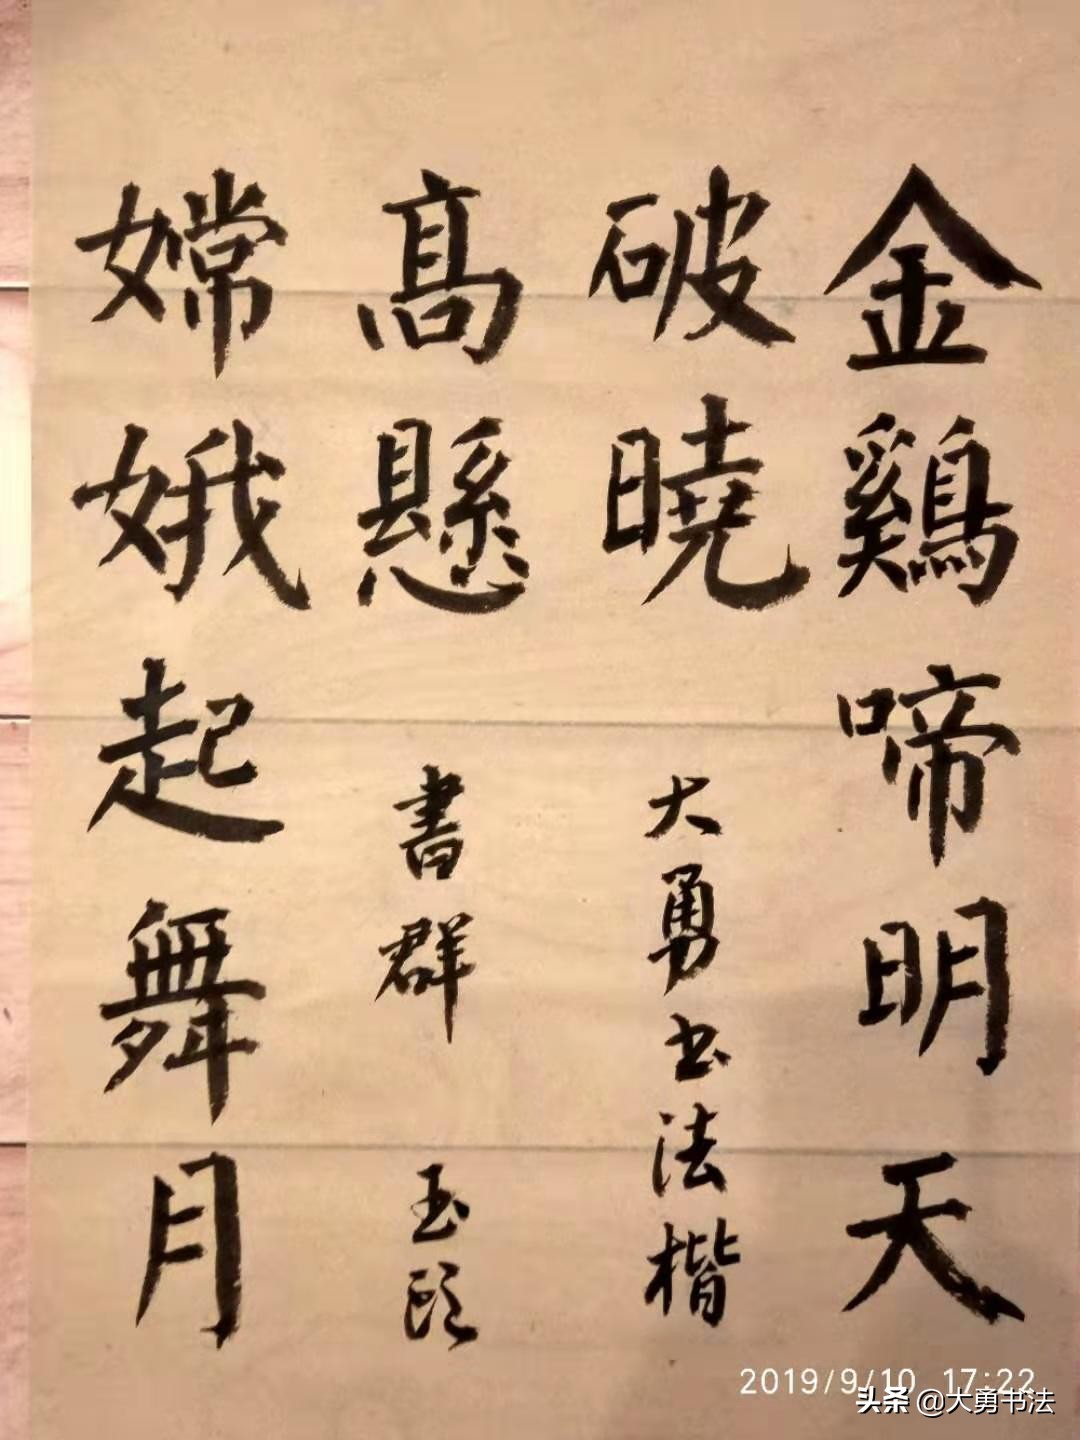 金鷄啼明天
破曉
大勇书法楷
髙懸
書群
玉
嫦娥起舞月
2019/9/10 17:22
头条 @大勇书法